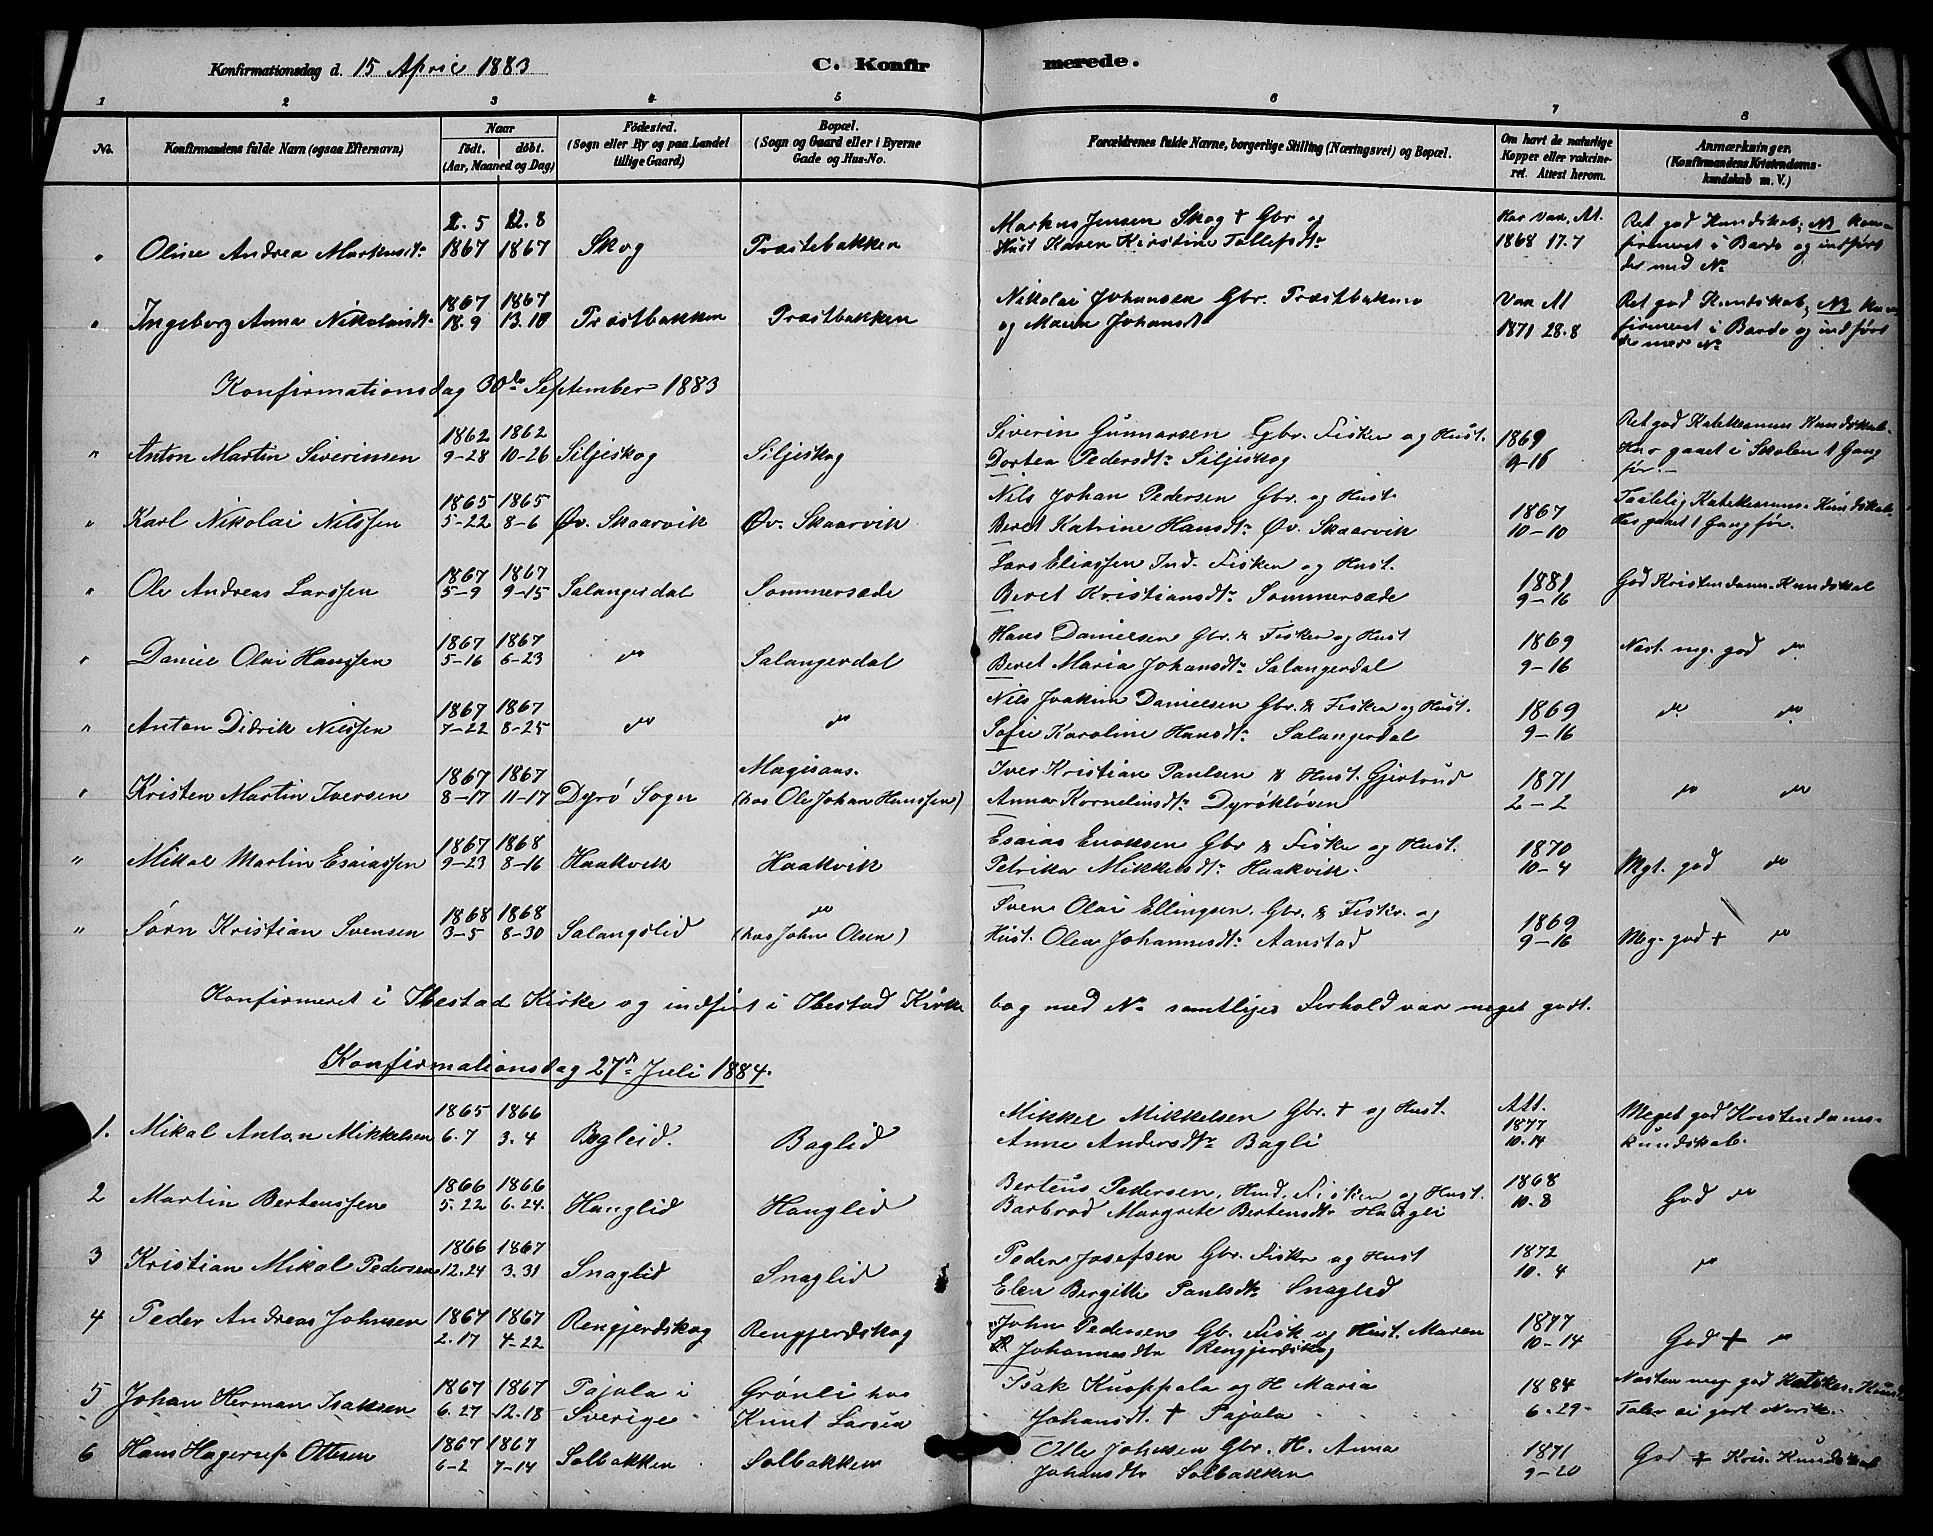 Konfirmationsdag d. 15 April 1883
C. Konfirmerede.
1 2 3 4 5 6 7 8
No.
Konfirmandens fulde Navn (ogsaa Efternavn)
Naar
födt. döbt.
(Aar, Maaned og Dag)
Födested.
(Sogn eller By og paa Landet
tillige Gaard)
Bopæl.
(Sogn og Gaard eller i Byerne
Gade og Hus-No.
Forældrenes fulde Navne, borgerlige Stilling (Næringsvei) og Bopæl.
Om havt de naturlige
Kopper eller vakcine-
ret. Attest herom.
Anmærkninger.
(Konfirmandens Kristendoms-
kundskab m. V.)
" Oline Andrea Markusdtr 5 1867 12.8 1867 Skog Præstebakken
Markus Jensen Skog + Gbr og
Hust Karen Kirstine Tollefsdtr
Har vax. At.
1868 17.7
Ret god Kundskab; NB kon-
firmeret i Bardo og indført
der med No
" Ingeborg Anna Nikolaisdtr 1867 18.9 1867 13.10 Præstbakken Præstbakken
Nikolai Johansen Gbr. Præstbakken
og Maren Johansdtr
Vax At
1871 28.8
Ret god Kundskab; NB kon-
firmeret i Bardo og indført
No
Konfirmationsdag 30de September 1883
" Anton Martin Siverinsen 1862 9-28 1862 10-26 Siljeskog Siljeskog
Siverin Gunnarsen Gbr. Fisker og Hust.
Dortea Pedersdtr Siljeskog
1869
9-16
Ret god Katekesmus Kundskab.
Har gaaet i Skolen 1 Gang
før.-
" Karl Nikolai Nilssen 1865 5-22 1865 8-6 Øv. Skaarvik Øv. Skaarvik
Nils Johan Pedersen Gbr. og Hust.
Beret Katrine Hansdtr Øv. Skaarvik
1867
10-10
Taalelig Katekesmus-Kundskab.
Har gaaet 1 Gang før.
" Ole Andreas Larssen 1867 5-9 1867 9-15 Salangerdal Sommersæde
Lars Eliassen Ind. Fisker og Hust.
Beret Kristiansdtr Sommersæde
1881
9-16
God Kristendoms-Kundskab
" Daniel Olai Hanssen 1867 5-16 1867 6-23 do Salangerdal
Hans Danielsen Gbr. & Fisker og Hust
Beret Maria Johansdtr Salangerdal
1869
9-16
Næst. mg. god do
" Anton Didrik Nilssen 1867 7-22 1867 8-25 do do
Nils Joakim Danielsen Gbr. & Fisker og Hust.
Sofie Karoline Hansdtr Salangerdal
1869
9-16
do do
" Kristen Martin Iversen 1867 8-17 1867 11-17 Dyrö Sogn
(hos Ole Johan Hanssen)
Iver Kristian Paulsen & Hust. Gjertrud
Anna Kornelinsdtr Dyröklöven
1871
2-2
do do
" Mikal Martin Esaiassen 1867 9-23 1868 8-16 Haakvik Haakvik
Esaias Enoksen Gbr & Fisker og Hust.
Petrika Mikkelsdtr Haakvik.
1870
10-4
Mgt. god do
" Sørn Kristian Svensen 1868 3-5 1868 8-30 Salangslid do
(hos John Olsen)
Sven Olai Ellingsen. Gbr. & Fisker. og
Hust. Olea Johannesdtr Aanstad
1869
9-16
Meg. god + do
Konfirmeret i Ibestad Kirke og indført i Ibestad Kirke bog med No samtliges Forhold var meget godt.
Konfirmationsdag 27de Juli 1884.
1. Mikal Anton Mikkelsen 1865 6.7 1866 3.4 Bagleid. Baglid
Mikkel Mikkelsen Gbr. + og Hust.
Anne Andersdtr Bagli
Att.
1877
10.14
Meget god Kristendoms-
kundskab.
2 Martin Berteussen 1866 5.22 1866 6.24. Hanglid Hanglid
Berteus Pedersen, Husd. Fisker og Hust.
Barbroe Margrete Bertensdtr Hangli
1868
10.8
God do
3 Kristian Mikal Pedersen 1866 12.24 1867 3.31 Snaglid Snaglid
Peder Josefsen Gbr. Fisker og Hust
Elen Bergitte Paulsdtr Snaglid
1872
10.4
do
4 Peder Andreas Johnsen 1867 2.17 1867 4-22 Rengjerdskog Rengjerdskog
John Pedersen Gb. Fisk og Hust. Maren
Johannesdtr Rengjerdskog
1877
10-14
God + do
5 Johan Herman Isaksen 1867 6.27 1867 12.18 Pajala i
Sverige
Grönli hos
Knut Larsen
Isak Kuoppala og H Maria
Johansdt. + Pajala
1884
6-29-
Næsten meg god Katekes. Kunds
Taler ei godt Norsk.
6 Hans Hagerup Ottesen 1867 6-2 1867 7-14 Solbakken Solbakken
Otte Johnsen Gbr. H. Anna
Johansdtr Solbakken
1871
9-20
God + Kris. Kundskab